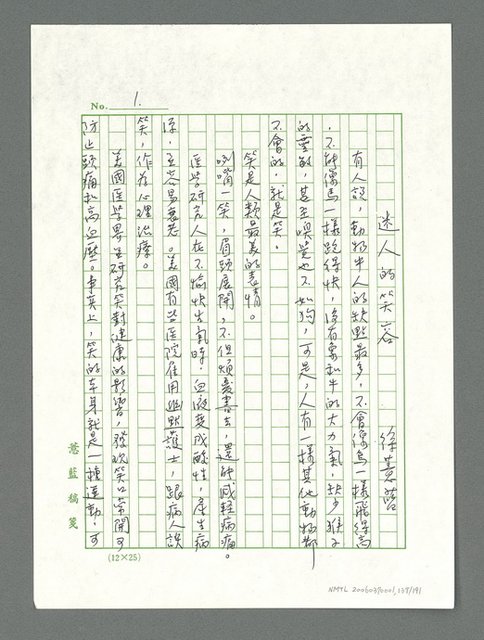 No. 1.
迷人的笑容
徐薏藍
有人說，動物中人的缺點最多，不會像鳥一樣飛得高
，不能像馬一樣跑得快，沒有象和牛的大力氣，缺少猴子
的靈敏，甚至嗅覺也不如狗，可是，人有一樣其他動物都
不會的，就是笑。
笑是人類最美的表情。
咧嘴一笑，眉頭展開，不但煩憂盡去，還能減輕病痛。
医学研究人在不愉快生氣時，血液變成酸性，產生病
，且容易衰老。美國有些医院僱用幽默護士，跟病人談
笑，作為心理治療。
美國医学界并研究笑對健康的影響，發現笑口常開可
防止頭痛和高血壓。事实上，笑的本身就是一種運動，可
薏藍稿箋
(12×25)
NMTL 20060390001, 137/191